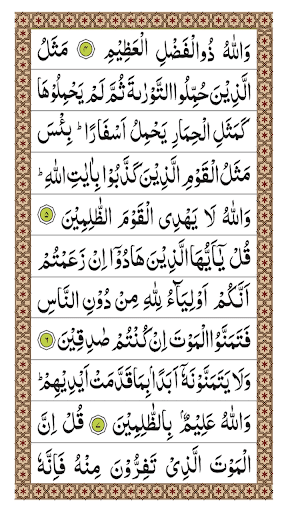 وَاللّٰهُ ذُوالْفَضْلِ الْعَظِیْمِ ۝۴ مَثَلُ
الَّذِیْنَ حُمِّلُوا التَّوْرٰىةَ ثُمَّ لَمْ یَحْمِلُوْهَا
كَمَثَلِ الْحِمَارِ یَحْمِلُ اَسْفَارًا ؕ بِئْسَ
مَثَلُ الْقَوْمِ الَّذِیْنَ كَذَّبُوْا بِاٰیٰتِ اللّٰهِ ؕ
وَاللّٰهُ لَا یَهْدِی الْقَوْمَ الظّٰلِمِیْنَ ۝۵
قُلْ یٰۤاَیُّهَا الَّذِیْنَ هَادُوْۤا اِنْ زَعَمْتُمْ
اَنَّكُمْ اَوْلِیَآءُ لِلّٰهِ مِنْ دُوْنِ النَّاسِ
فَتَمَنَّوُا الْمَوْتَ اِنْ كُنْتُمْ صٰدِقِیْنَ ۝۶
وَلَا یَتَمَنَّوْنَهٗۤ اَبَدًۢا بِمَا قَدَّمَتْ اَیْدِیْهِمْ ؕ
وَاللّٰهُ عَلِیْمٌۢ بِالظّٰلِمِیْنَ ۝۷ قُلْ اِنَّ
الْمَوْتَ الَّذِیْ تَفِرُّوْنَ مِنْهُ فَاِنَّهٗ